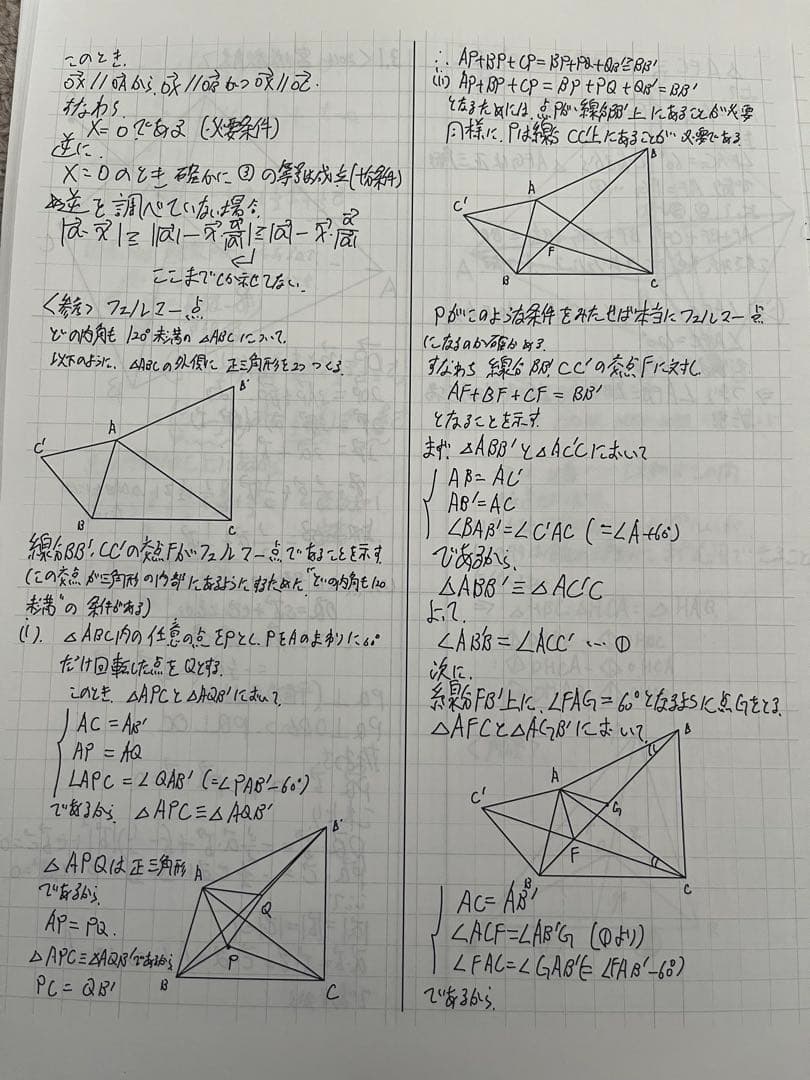 このとき、
→OX // →OAから、→OX // →OB かつ →OX // →OC.
すなわち
X=0である (必要条件)
逆に、
X=0のとき 確かに③の等号は成立(十分条件)
逆を調べていない場合、
|→a-→x| ≧ |→a|-→x・→a/|→a| ≧ |→a|-→x・→a/|→a|
ここまでしか示せてない.
<参考> フェルマー点
どの内角も120°未満の△ABCについて、
以下のように、△ABCの外側に正三角形を2つつくる.
B'
A
C'
B
C
線分BB', CC'の交点Fがフェルマー点であることを示す
(この交点が三角形の内部にあるようにするために"どの内角も120
未満"の条件がある)
(i). △ABC内の任意の点をPとし、PをAのまわりに60°
だけ回転した点をQとする.
このとき、△APCと△AQB'において
AC=AB'
AP=AQ
∠APC=∠QAB' (=∠PAB'-60°)
であるから、△APC≡△AQB'
△APQは正三角形
であるから
AP=PQ.
△APC≡△AQB'であるから
PC=QB'
B'
A
Q
P
B
C
∴ AP+BP+CP=BP+PQ+QB'≧BB'
(ii) AP+BP+CP=BP+PQ+QB'=BB'
となるためには、点Pが線分BB'上にあることが必要
同様に、Pは線分CC'上にあることが必要である
B'
A
C'
F
B
C
Pがこのような条件をみたせば本当にフェルマー点
になるのか確かめる.
すなわち 線分BB', CC'の交点Fに対し、
AF+BF+CF=BB'
となることを示す.
まず、△ABB'と△AC'Cにおいて
AB=AC'
AB'=AC
∠BAB'=∠C'AC (=∠A+60°)
であるから、
△ABB'≡△AC'C
よって、
∠AB'B=∠ACC' … ①
次に、
線分FB'上に、∠FAG=60°となるように点Gをとる.
△AFCと△AGB'において、
B'
A
C'
G
F
B
C
AC=AB'
∠ACF=∠AB'G (①より)
∠FAC=∠GAB'(=∠FAB'-60°)
であるから、